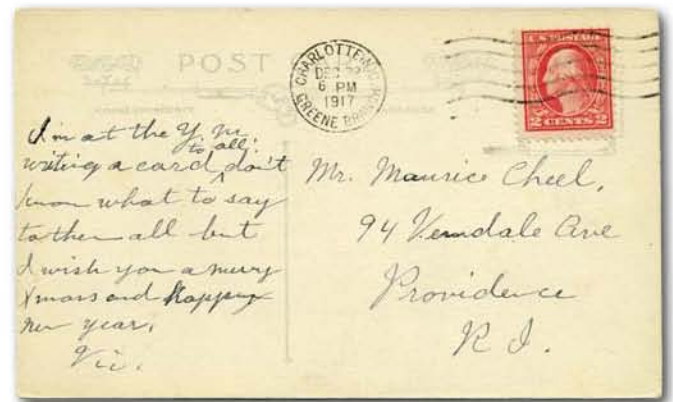 POST
CHARLOTTE N.C.
DEC 22
6 PM
1917
GREENE BRANCH
U.S. POSTAGE
2 CENTS 2
I'm at the Y.M.
writing a card to all; don't
know what to say
to them all but
I wish you a merry
Xmas and Happy
New year.
Vic.
Mr. Maurice Cheel,
94 Verndale Ave
Providence
R I.